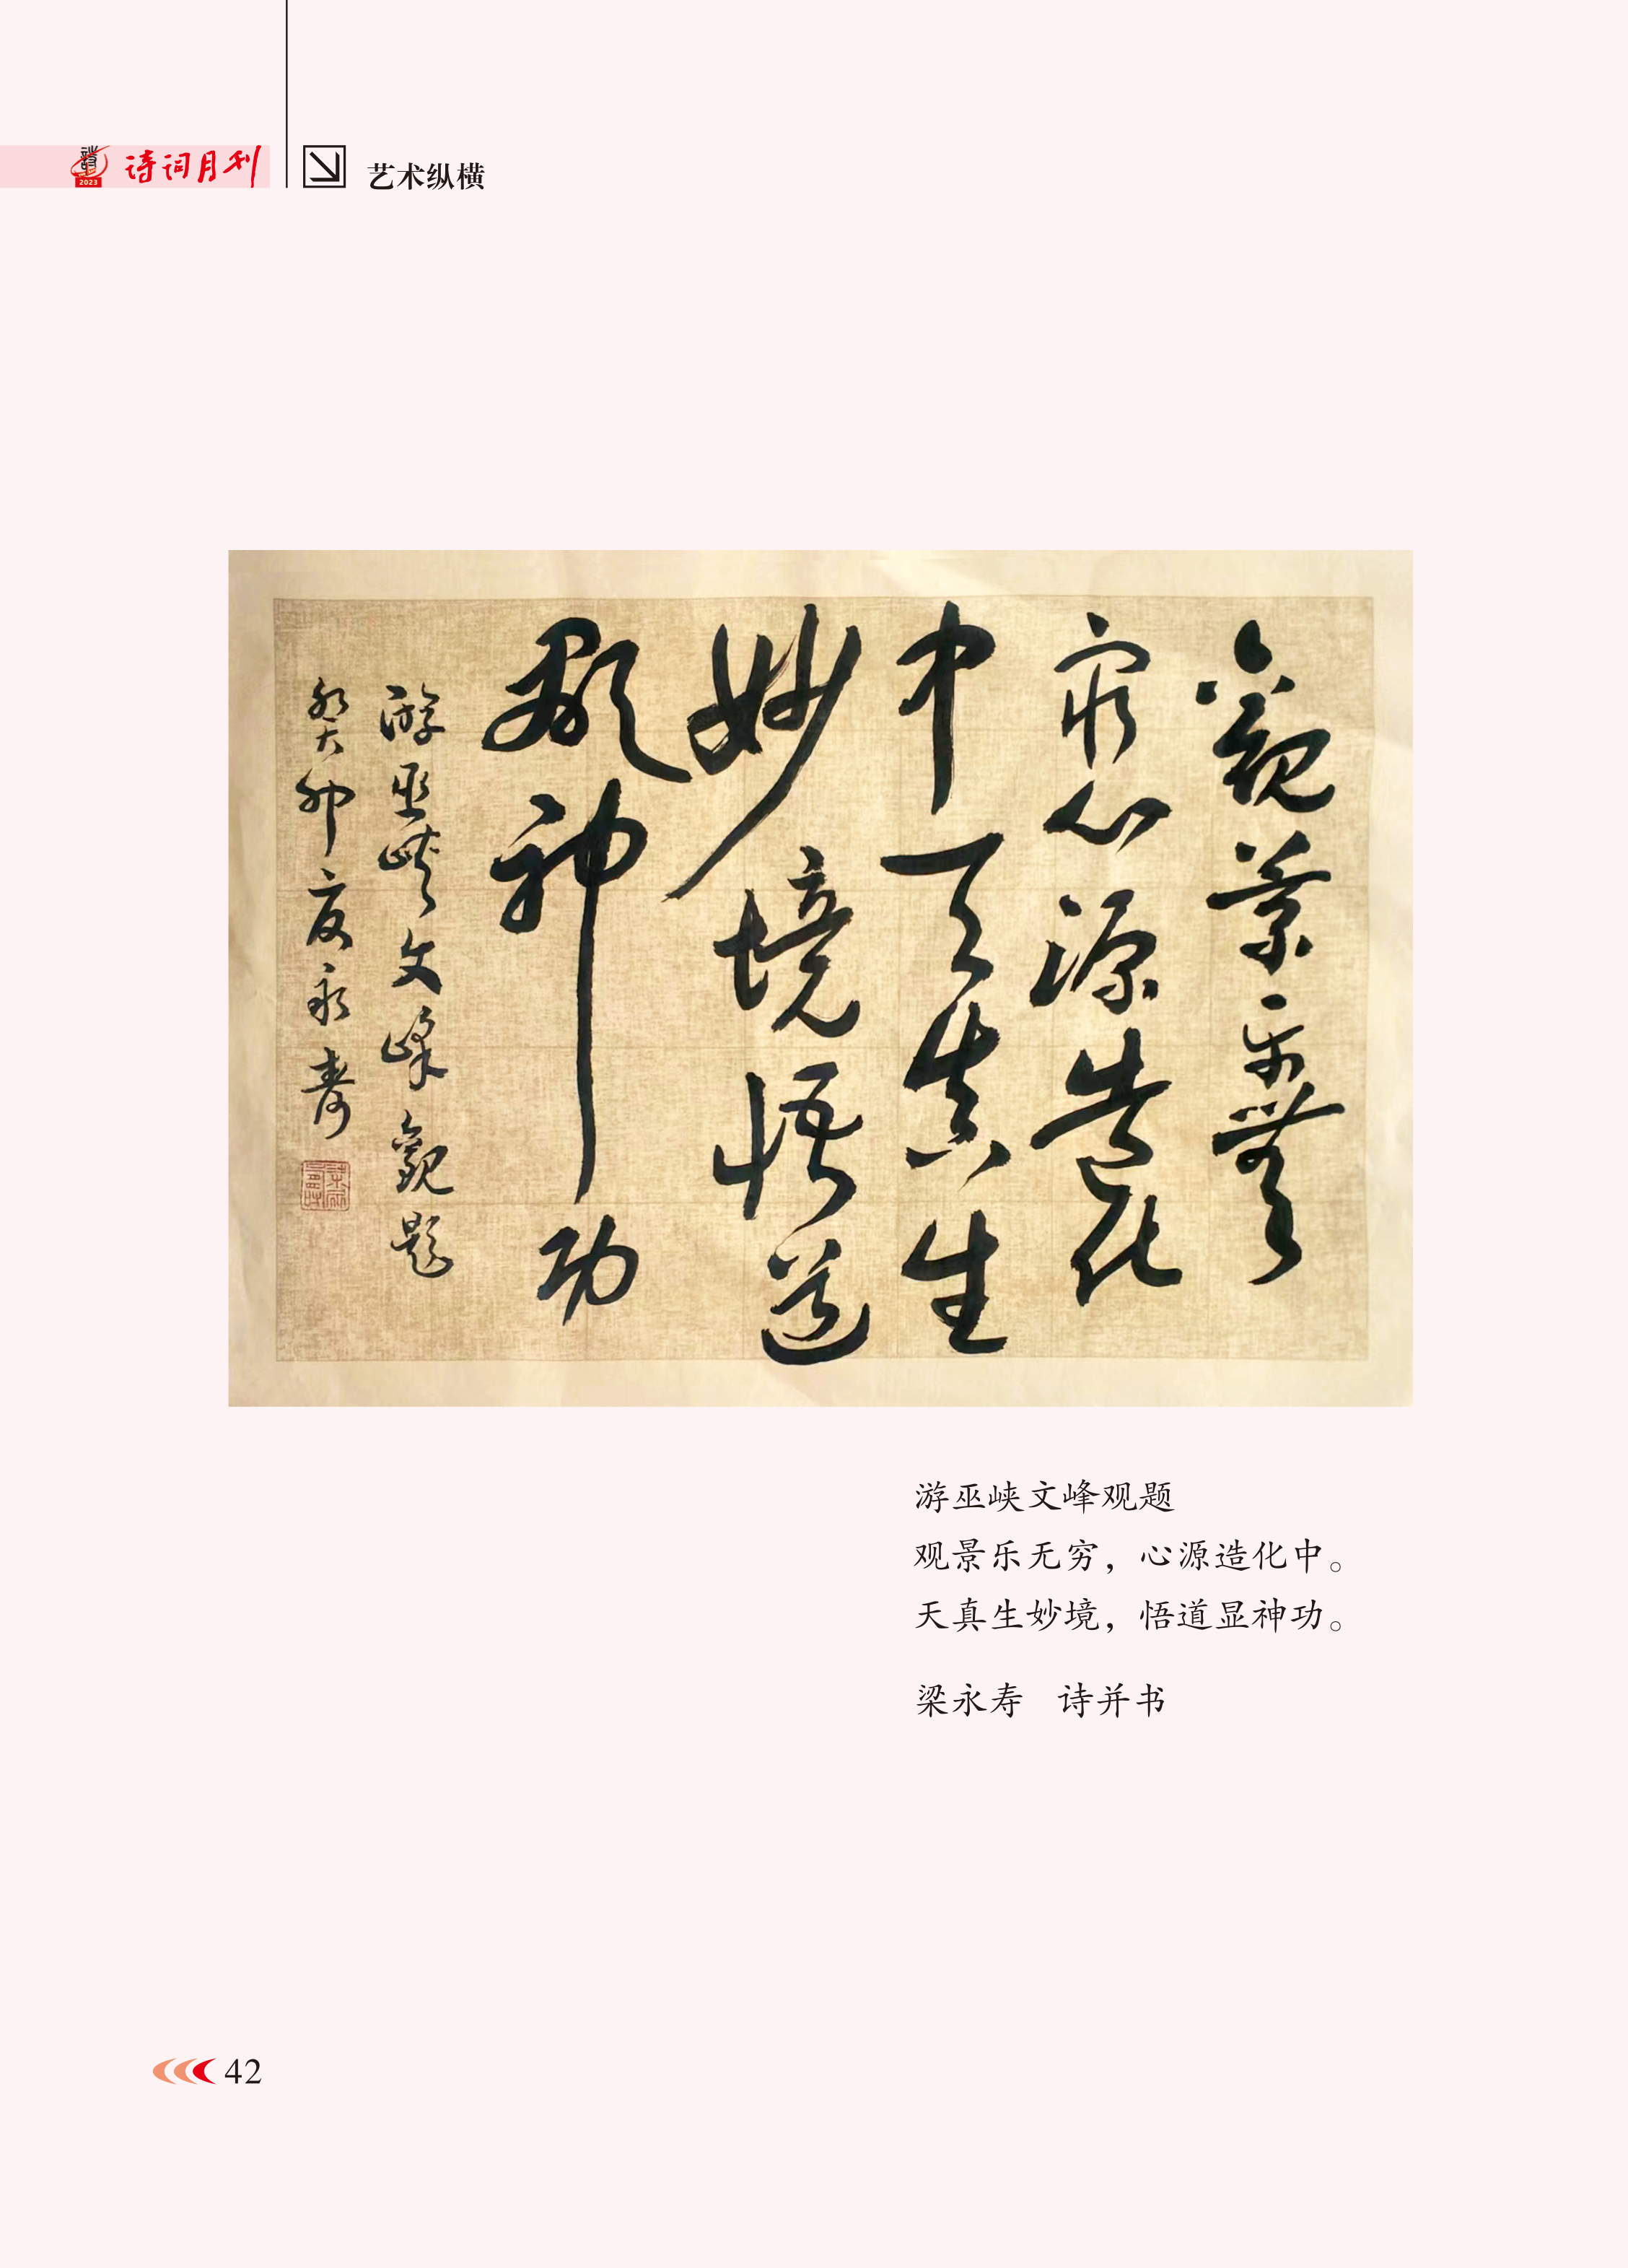 诗词月刊
2023
艺术纵横
觀景乐無
窮心源造化
中天真生
妙境悟道
顯神功
游巫峡文峰觀题
癸卯夏永壽
游巫峡文峰观题
观景乐无穷，心源造化中。
天真生妙境，悟道显神功。
梁永寿 诗并书
42